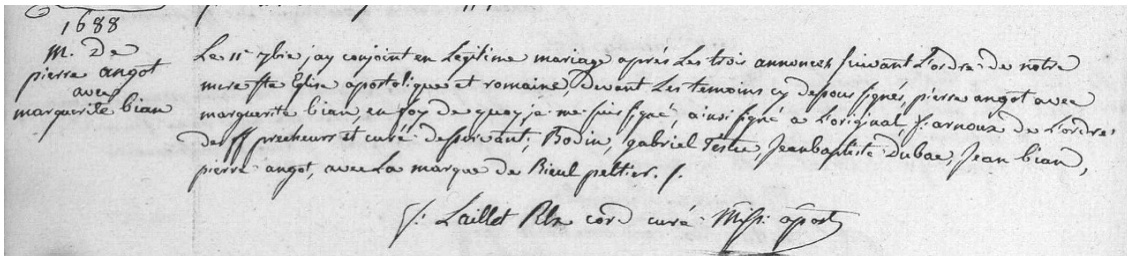 1688
m. de
pierre angot
avec
marguerite bian
Le 11e 7bre jay conjoint en Légitime mariage après Les trois annonces suivant L'ordre de notre
mere ste Eglise apostolique et romaine, devant Les temoins cy dessous signés, pierre angot avec
marguerite bian, en foy de quoy je me suis signé ainsi signé a L'original, f: arnoux de L'ordre
des ff precheurs et curé desservant; Bodin, gabriel Testu, Jean baptiste Dubac, Jean bian,
pierre angot, avec La marque de Rieul peltier. f.
f: Laillet Rlx cord curé Miss: apost